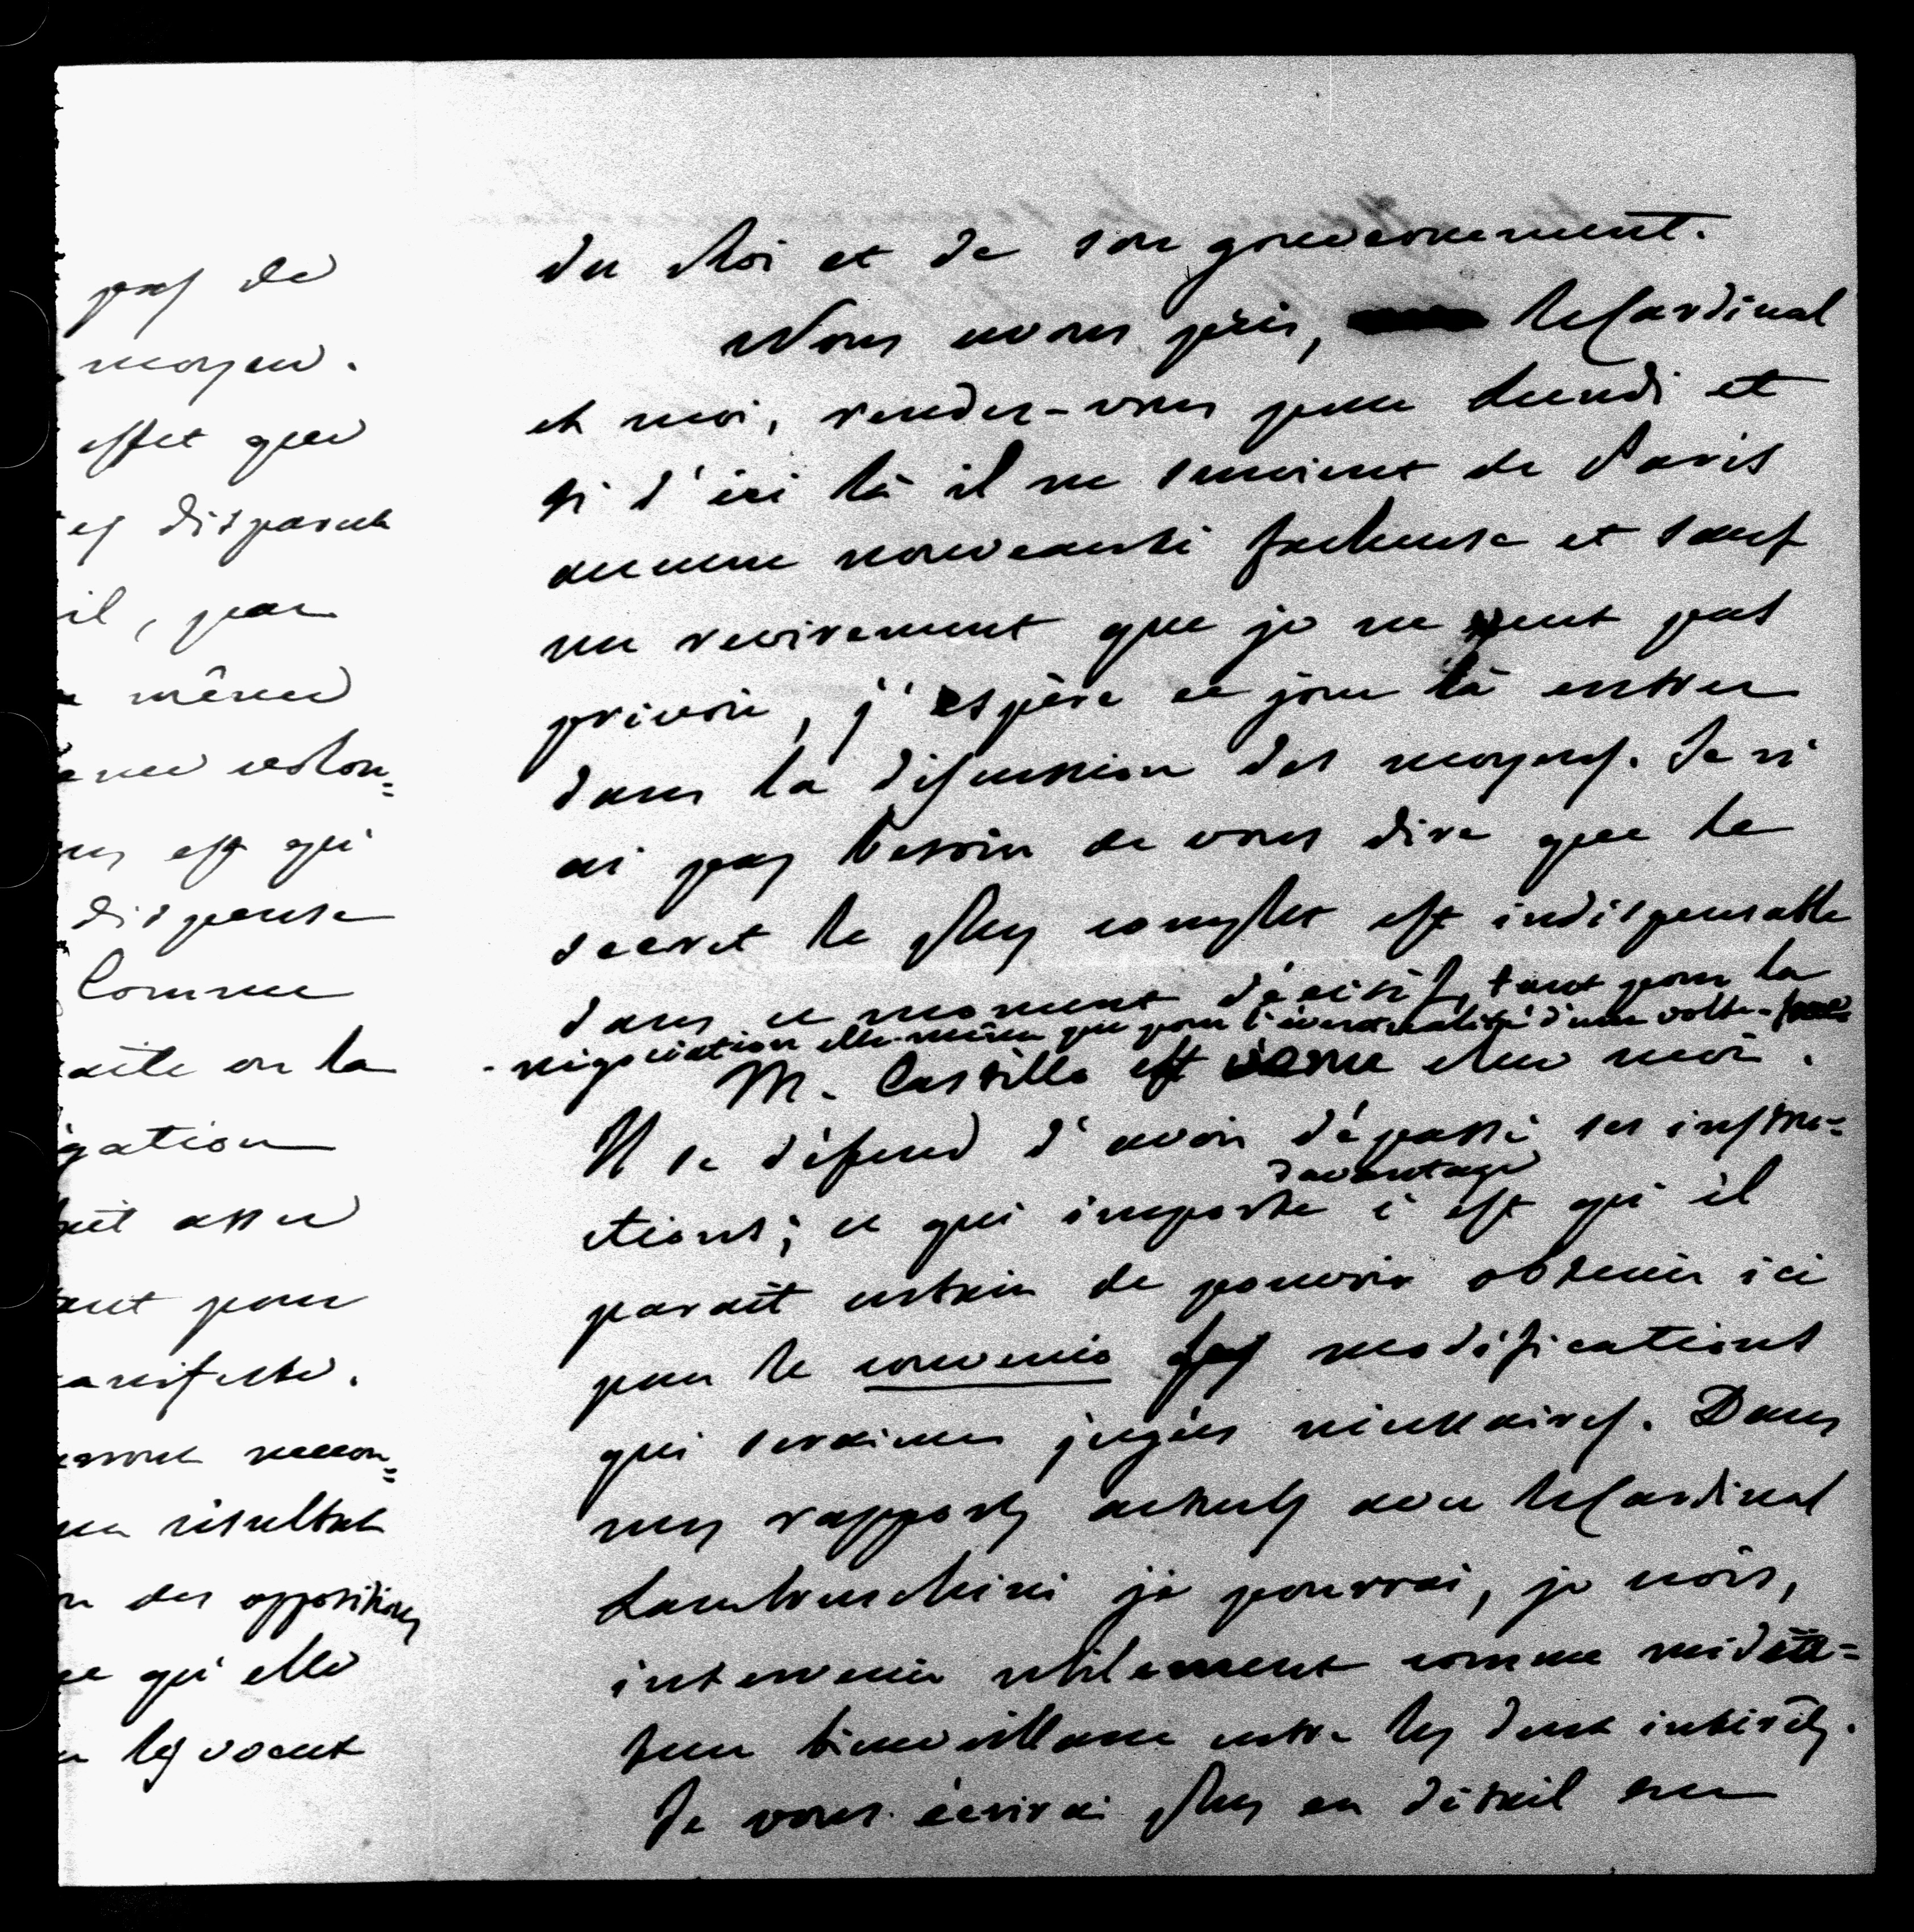 pas de
moyen.
effet que
es disparut
il, par
même
volon=
est qui
dispense
Comme
on la
gation
assez
pour
manifeste.
recon=
résultat
des oppositions
qu'elle
les voeux
du Roi et de son gouvernement.
Nous avons pris, le Cardinal
et moi, rendez-vous pour Lundi et
si d'ici là il ne survient de Paris
aucune nouveauté facheuse et sauf
un revirement que je ne peut pas
prévoir, j'espère ce jour là entrer
dans la discussion des moyens. Je n'
ai pas besoin de vous dire que le
secret le plus complet est indispensable
dans ce moment décisif, tant pour la
négociation elle-même que pour l'éventualité d'une volte-face
M. Castillo est venu chez moi.
Il se défend d'avoir dépassé ses instru=
ctions; ce qui importe davantage c'est qu'il
parait certain de pouvoir obtenir ici
pour le convenio les modifications
qui seraient jugées nécessaires. Dans
mes rapports actuels avec le Cardinal
Lambruschini je pourrai, je crois,
intervenir utilement comme média=
teur bienveillant entre les deux intérêts.
Je vous écrirai plus en détail sur